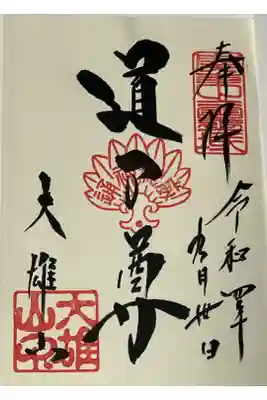 奉拝
令和四年
九月卅日
道了尊
大雄山
大雄
山印